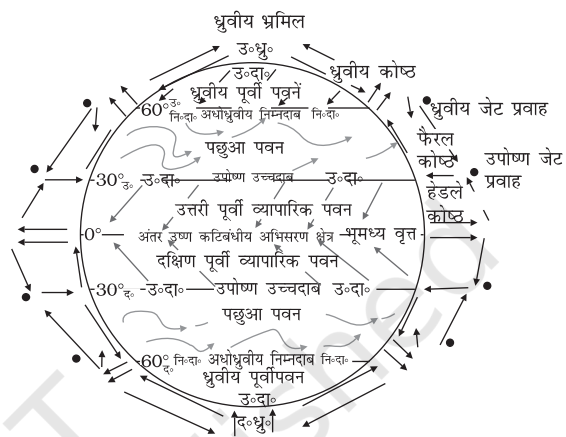 ध्रुवीय भ्रमिल
उ॰ध्रु॰
उ॰दा॰
ध्रुवीय कोष्ठ
ध्रुवीय पूर्वी पवनें
60° उ॰
नि॰दा॰ अधोध्रुवीय निम्नदाब नि॰दा॰
ध्रुवीय जेट प्रवाह
पछुआ पवन
फैरल
कोष्ठ
उपोष्ण जेट
प्रवाह
30° उ॰ उ॰दा॰ उपोष्ण उच्चदाब उ॰दा॰
हेडले
कोष्ठ
उत्तरी पूर्वी व्यापारिक पवन
0° अंतर उष्ण कटिबंधीय अभिसरण क्षेत्र भूमध्य वृत्त
दक्षिण पूर्वी व्यापारिक पवन
30° द॰ उ॰दा॰ उपोष्ण उच्चदाब उ॰दा॰
पछुआ पवन
60° द॰ नि॰दा॰ अधोध्रुवीय निम्नदाब नि॰दा॰
ध्रुवीय पूर्वीपवन
उ॰दा॰
द॰ध्रु॰